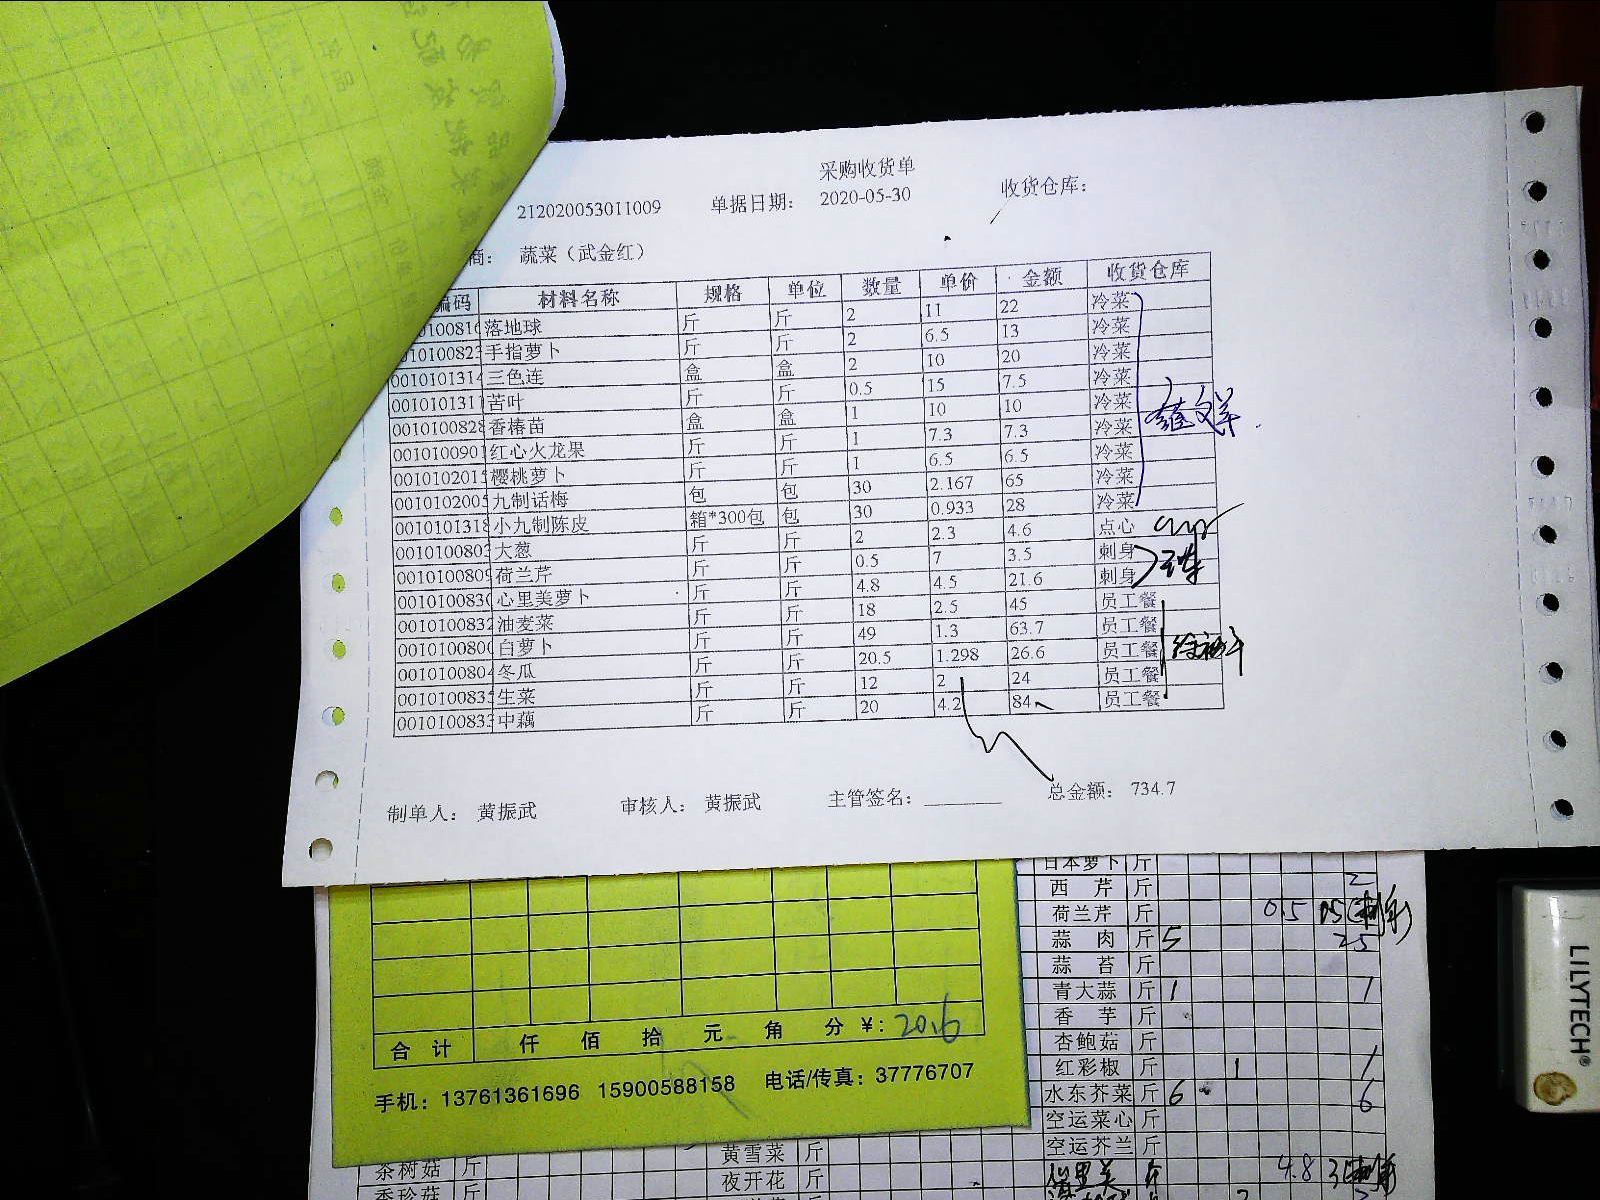 采购收货单
212020053011009 单据日期： 2020-05-30 收货仓库：
商： 蔬菜（武金红）
编码 材料名称 规格 单位 数量 单价 金额 收货仓库
落地球 斤 斤 2 11 22 冷菜
手指萝卜 斤 斤 2 6.5 13 冷菜
0010101314 三色连 盒 盒 2 10 20 冷菜
0010101311 苦叶 斤 斤 0.5 15 7.5 冷菜
0010100828 香椿苗 盒 盒 1 10 10 冷菜
0010100901 红心火龙果 斤 斤 1 7.3 7.3 冷菜
0010102015 樱桃萝卜 斤 斤 1 6.5 6.5 冷菜
0010102005 九制话梅 包 包 30 2.167 65 冷菜
0010101318 小九制陈皮 箱*300包 包 30 0.933 28 冷菜
0010100803 大葱 斤 斤 2 2.3 4.6 点心
0010100809 荷兰芹 斤 斤 0.5 7 3.5 刺身
0010100830 心里美萝卜 斤 斤 4.8 4.5 21.6 刺身
0010100832 油麦菜 斤 斤 18 2.5 45 员工餐
0010100800 白萝卜 斤 斤 49 1.3 63.7 员工餐
0010100804 冬瓜 斤 斤 20.5 1.298 26.6 员工餐
0010100835 生菜 斤 斤 12 2 24 员工餐
0010100833 中藕 斤 斤 20 4.2 84 员工餐
制单人： 黄振武 审核人： 黄振武 主管签名： 总金额： 734.7
日本萝卜 斤
西芹 斤 2
荷兰芹 斤 0.5
蒜肉 斤 5 25
蒜苔 斤
青大蒜 斤 1 1
香芋 斤
杏鲍菇 斤
红彩椒 斤 1 1
水东芥菜 斤 6 6
空运菜心 斤
空运芥兰 斤
心里美 斤 4.8
合计 仟 佰 拾 元 角 分 ¥： 20.6
手机：13761361696 15900588158 电话/传真：37776707
茶树菇 斤 黄雪菜 斤
香珍菇 斤 夜开花 斤
LILYTECH®